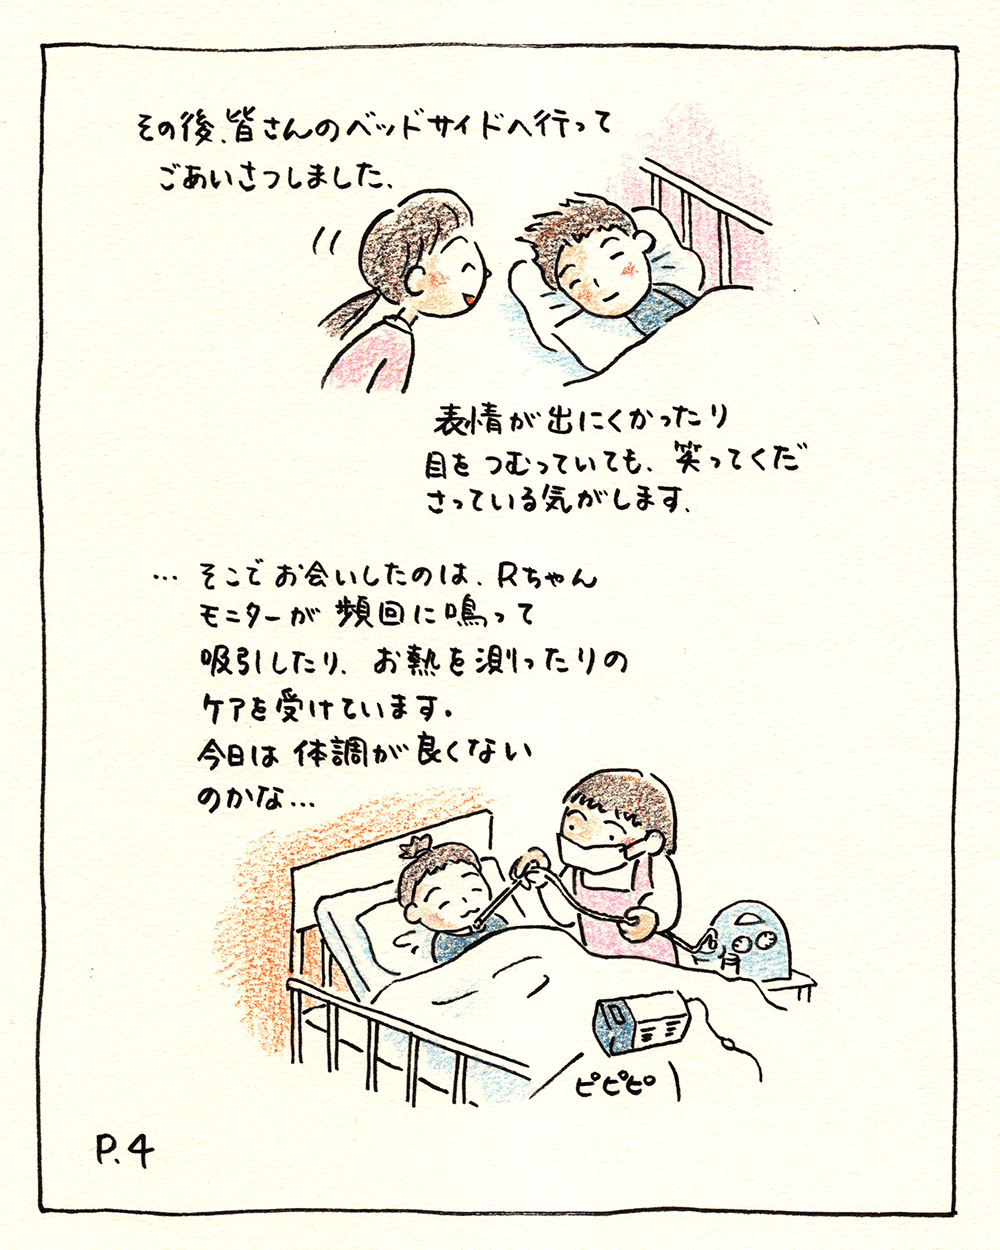 その後、皆さんのベッドサイドへ行って
ごあいさつしました、
表情が出にくかったり
目をつむっていても、笑ってくだ
さっている気がします、
… そこでお会いしたのは、Rちゃん
モニターが頻回に鳴って
吸引したり、お熱を測ったりの
ケアを受けています。
今日は体調が良くない
のかな…
ピピピ
P.4